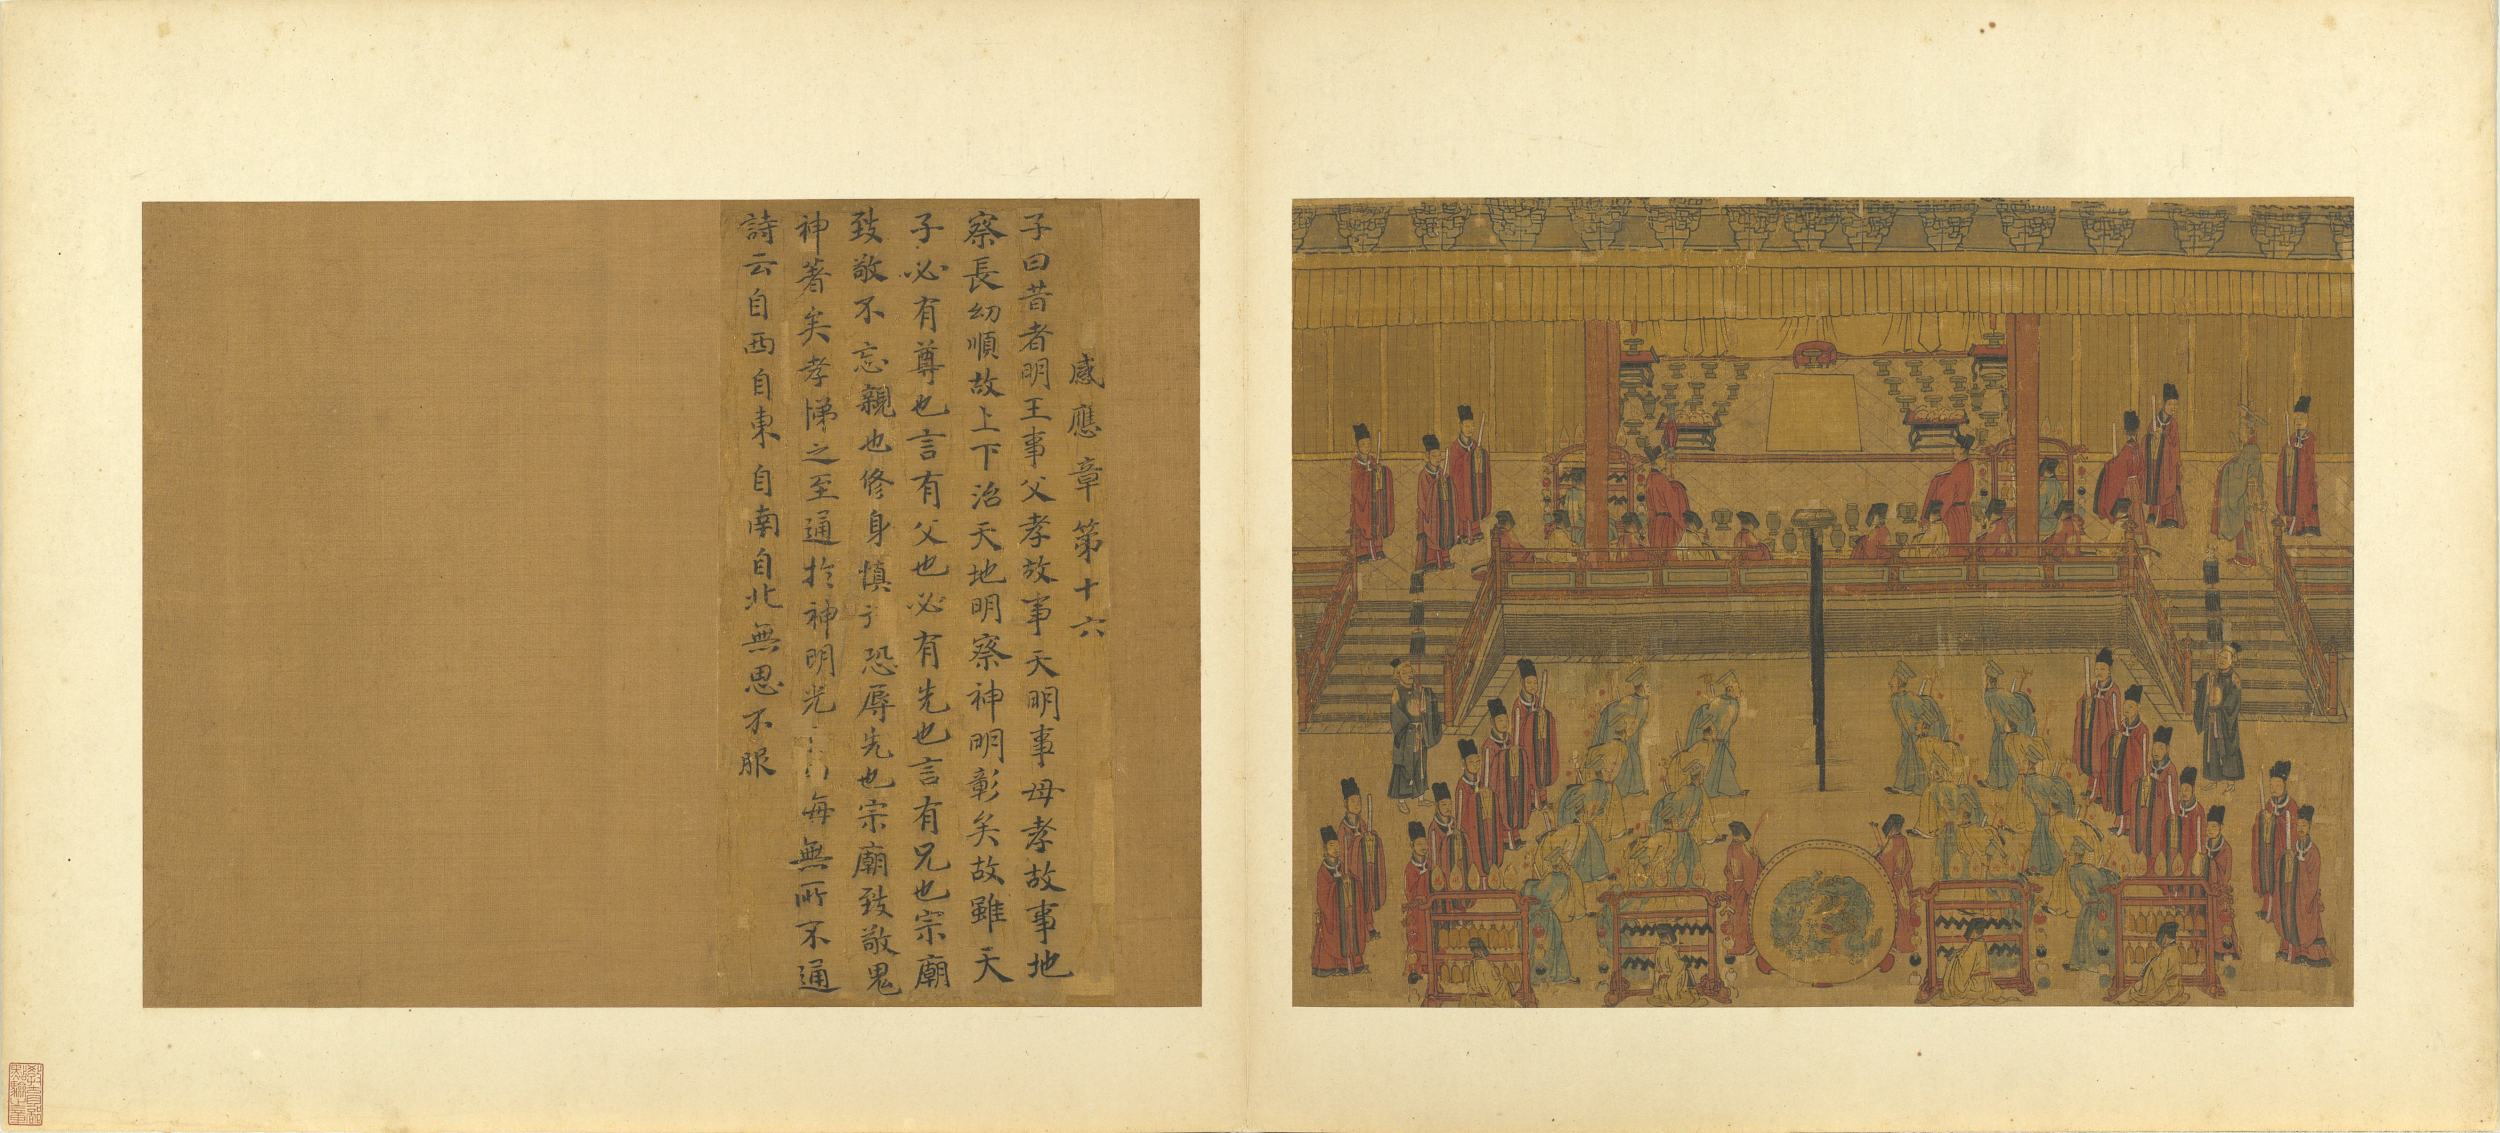 感應章第十六
子曰昔者明王事父孝故事天明事母孝故事地
察長幼順故上下治天地明察神明彰矣故雖天
子必有尊也言有父也必有先也言有兄也宗廟
致敬不忘親也修身慎行恐辱先也宗廟致敬鬼
神著矣孝悌之至通於神明光 海無所不通
詩云自西自東自南自北無思不服